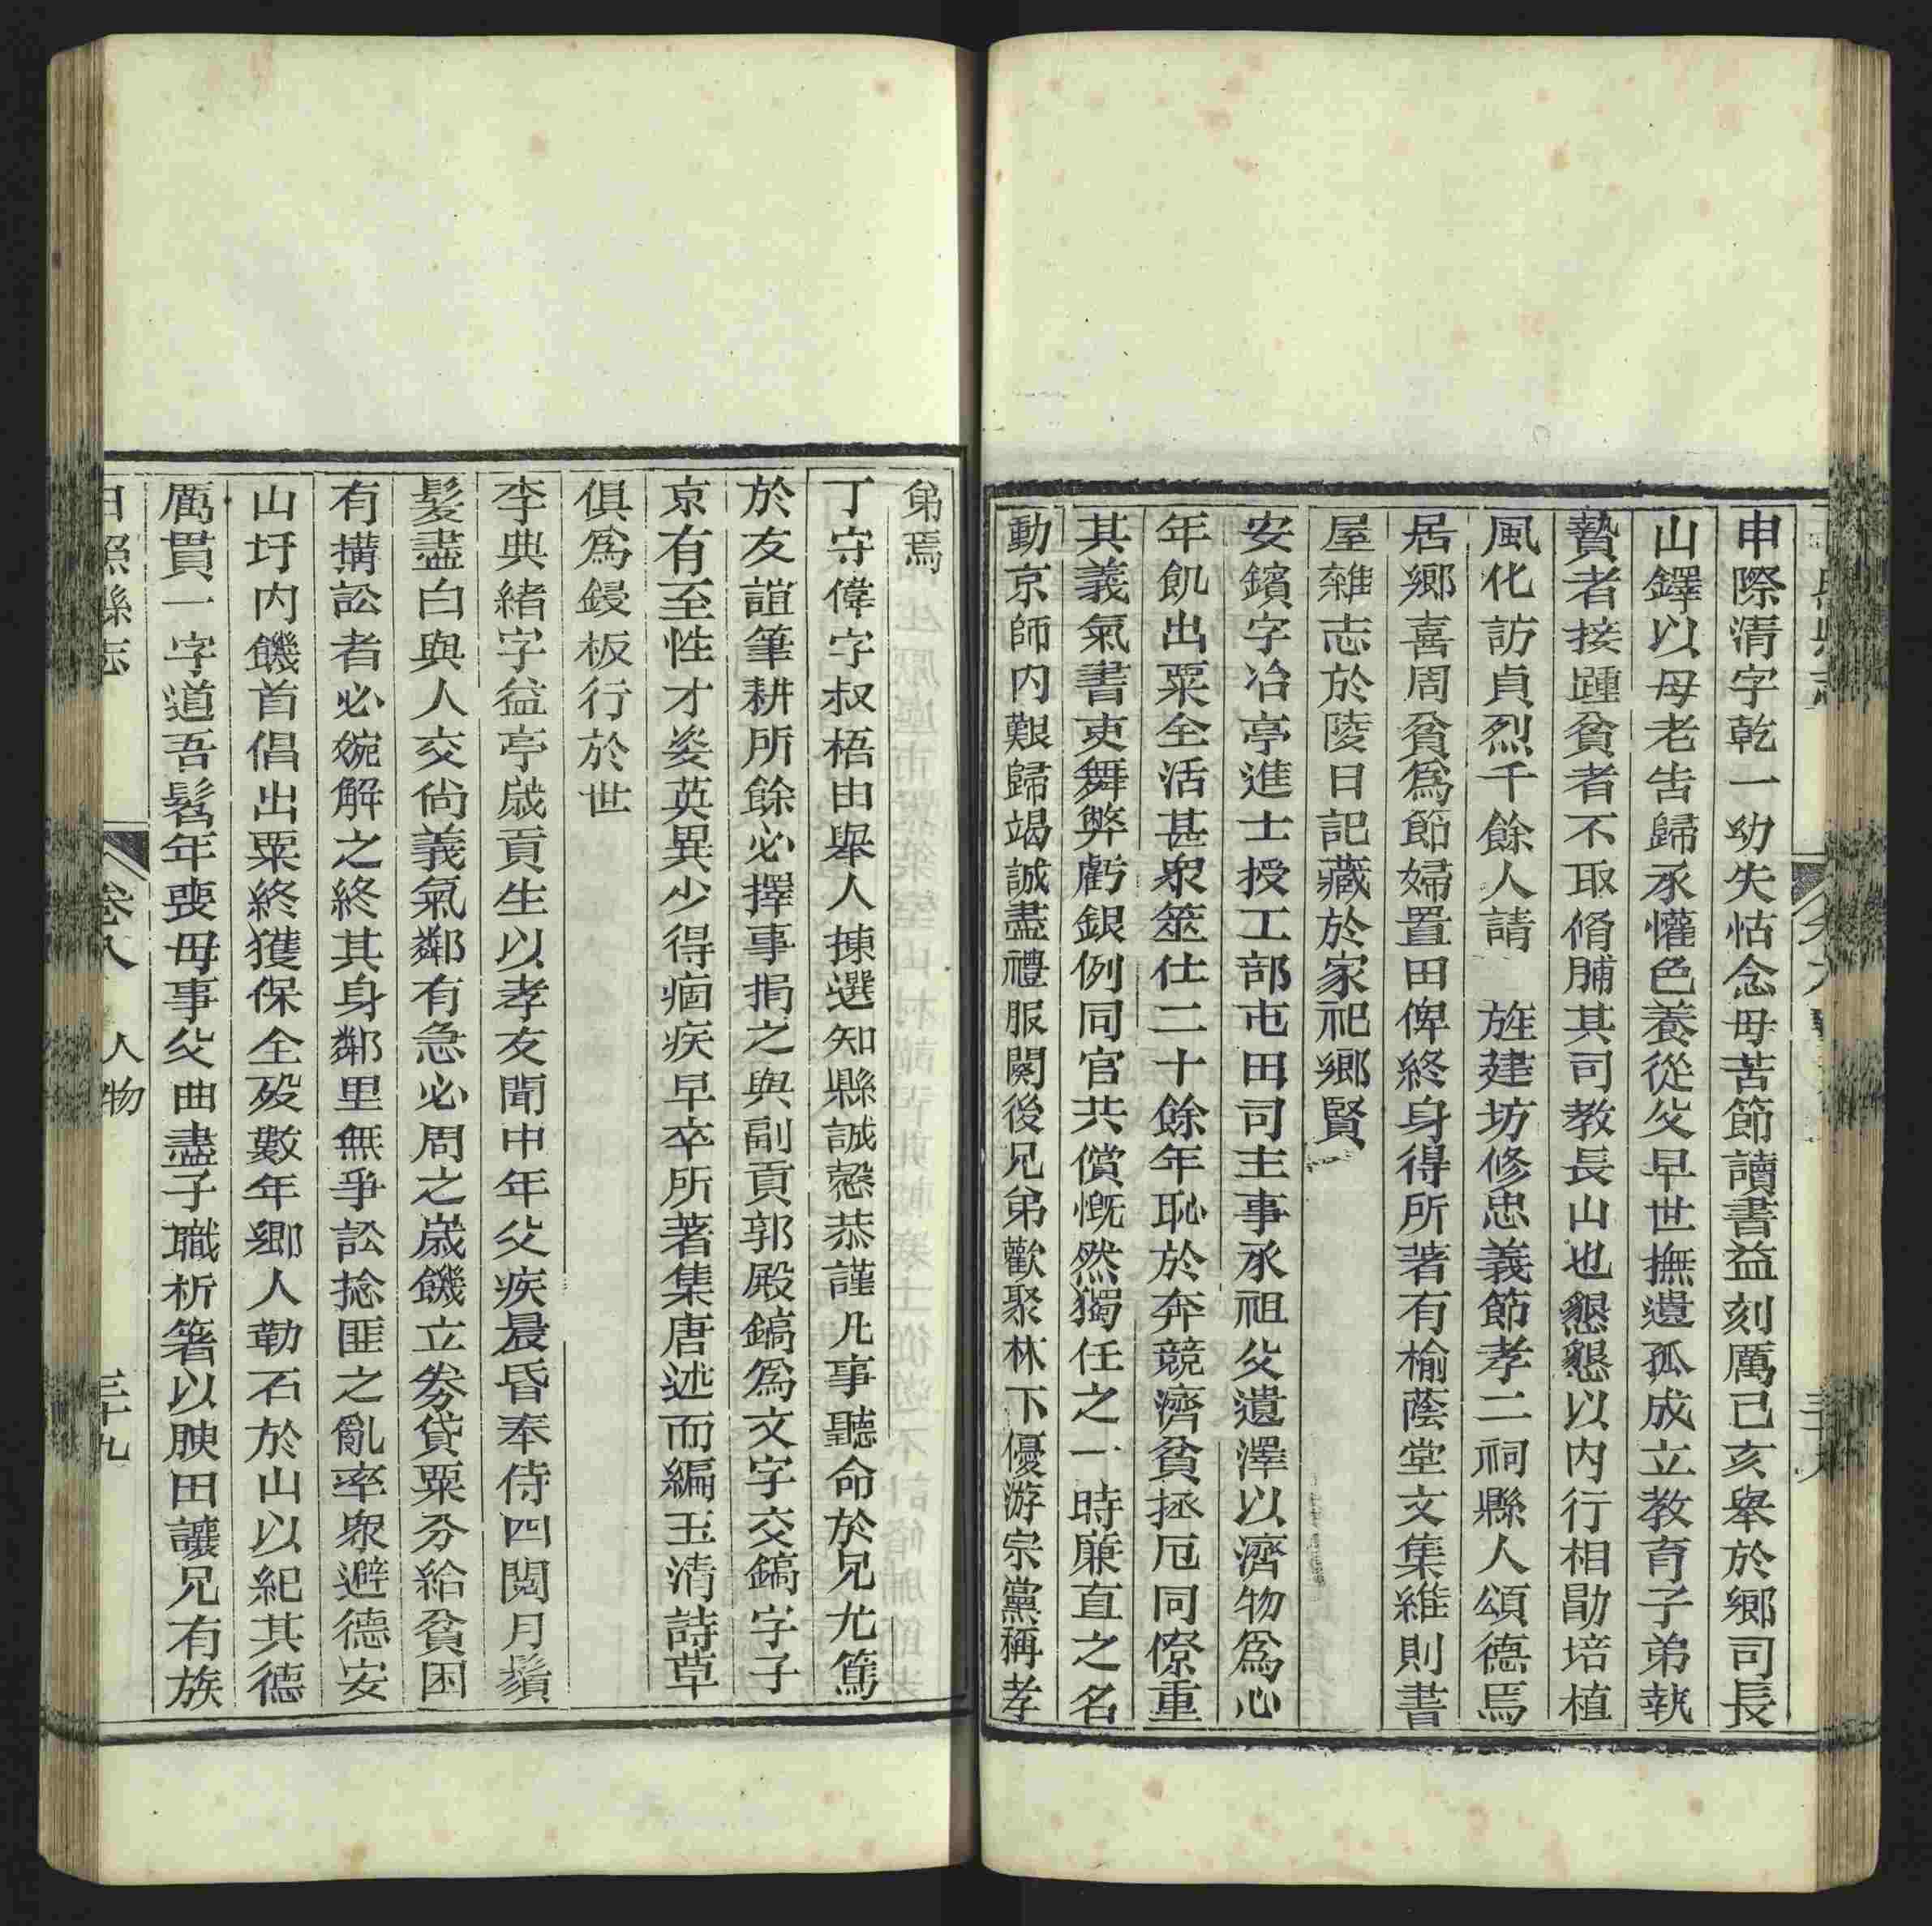 申際清字乾一幼失怙念母苦節讀書益刻厲己亥舉於鄉司長
山鐸以母老告歸承懽色養從父早世撫遺孤成立教育子弟執
贄者接踵貧者不取脩脯其司教長山也懇懇以內行相勖培植
風化訪貞烈千餘人請　旌建坊修忠義節孝二祠縣人頌德焉
居鄉喜周貧為節婦置田俾終身得所著有榆蔭堂文集維則書
屋雜志於陵日記藏於家祀鄉賢
安鑌字冶亭進士授工部屯田司主事承祖父遺澤以濟物為心
年飢出粟全活甚衆筮仕二十餘年恥於奔競濟貧拯厄同僚重
其義氣書吏舞弊虧銀例同官共償慨然獨任之一時廉直之名
動京師內艱歸竭誠盡禮服闋後兄弟歡聚林下優游宗黨稱孝
弟焉
丁守偉字叔梧由舉人揀選知縣誠慤恭謹凡事聽命於兄尤篤
於友誼筆耕所餘必擇事捐之與副貢郭殿鎬為文字交鎬字子
京有至性才姿英異少得痼疾早卒所著集唐述而編玉清詩草
俱為鋟板行於世
李典緒字益亭歲貢生以孝友聞中年父疾晨昏奉侍四閱月鬚
髮盡白與人交尚義氣鄰有急必周之歲饑立劵貸粟分給貧困
有搆訟者必婉解之終其身鄰里無爭訟捻匪之亂率衆避德安
山圩內饑首倡出粟終獲保全歿數年鄉人勒石於山以紀其德
厲貫一字道吾髫年喪母事父曲盡子職析箸以腴田讓兄有族
日照縣志
卷八　人物
三十九